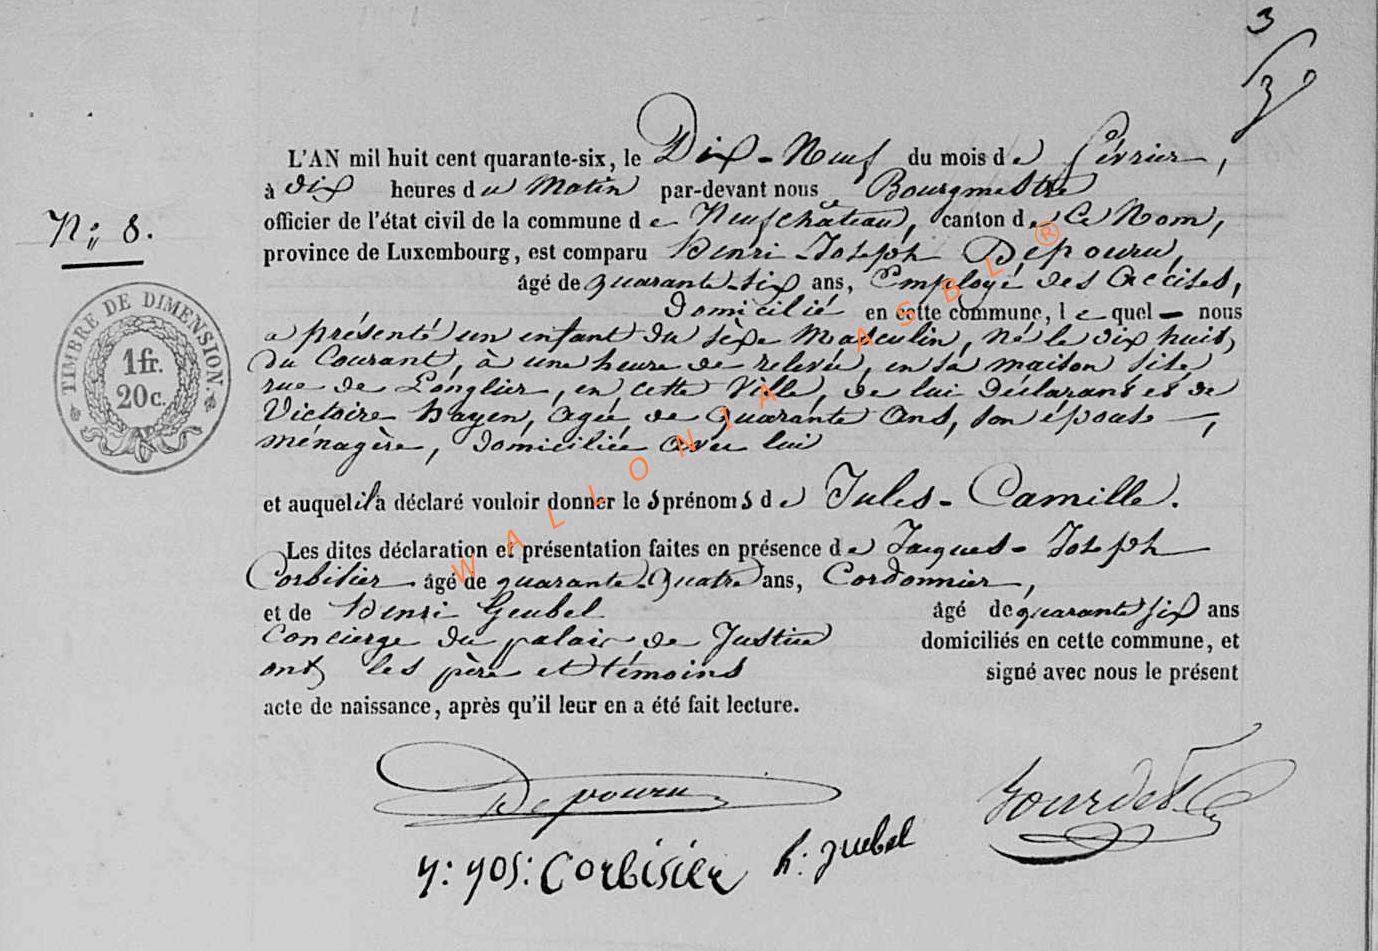 3
3
N° 8.
L'AN mil huit cent quarante-six, le Dix-Neuf du mois de février,
à dix heures du Matin par-devant nous Bourgmestre
officier de l'état civil de la commune de Neufchâteau, canton de Ce Nom,
province de Luxembourg, est comparu Henri-Joseph Depouru,
âgé de quarante-six ans, Employé des Accises,
Domicilié en cette commune, lequel — nous
a présenté un enfant du sèxe Masculin, né le dix huit
du Courant, à une heure de relevée, en sa maison sise
rue de Longlier, en cette Ville, de lui déclarant et de
Victoire Hayen, agée de quarante Ans, son épouse —,
ménagère, domiciliée avec lui
et auquel il a déclaré vouloir donner les prénoms de Jules-Camille.
Les dites déclaration et présentation faites en présence de Jacques-Joseph
Corbisier âgé de quarante-quatre ans, Cordonnier,
et de Henri Geubel âgé de quarante six ans
Concierge du palais de Justice domiciliés en cette commune, et
ont les père et témoins signé avec nous le présent
acte de naissance, après qu'il leur en a été fait lecture.
TIMBRE DE DIMENSION.
1 fr.
20 c.
WALLONIA ASBL ®
Depouru
J: Jos: Corbisier
h: Geubel